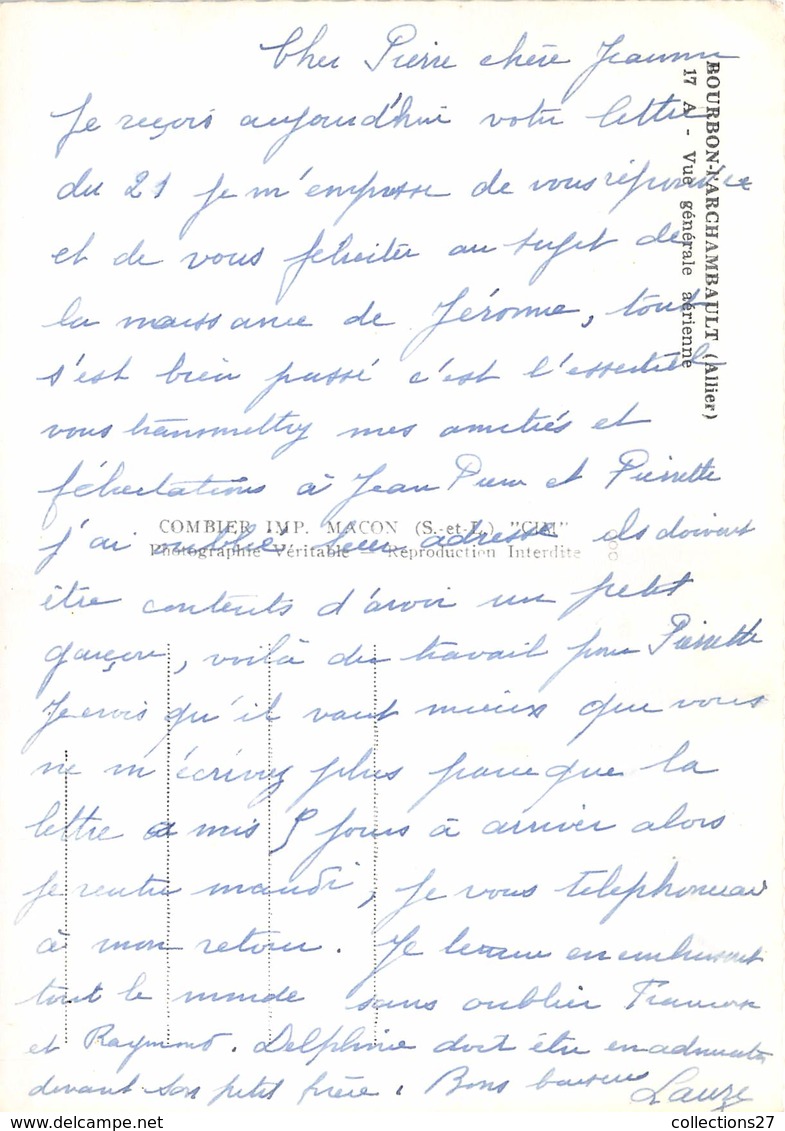 Cher Pierre chère Jeanine
Je reçois aujourd'hui votre lettre
du 21 je m'empresse de vous répondre
et de vous féliciter au sujet de
la naissance de Jérome, tout
s'est bien passé c'est l'essentiel
vous transmettrez mes amitiés et
félicitations à Jean Pierre et Pierrette
j'ai oublié leur adresse ils doivent
être contents d'avoir un petit
garçon, voilà du travail pour Pierrette
Je crois qu'il vaut mieux que vous
ne m'écrivez plus parce que la
lettre a mis 5 jours à arriver alors
je rentre mardi, je vous telephonerai
à mon retour. Je termine en embrassant
tout le monde sans oublier
et Raymond. Delphine doit être en admiration
devant son petit frère. Bons baisers
BOURBON-l'ARCHAMBAULT (Allier)
17 A - Vue générale aérienne
COMBIER IMP. MACON (S.-et-L.) "CIM"
Photographie Véritable - Reproduction Interdite
collections27